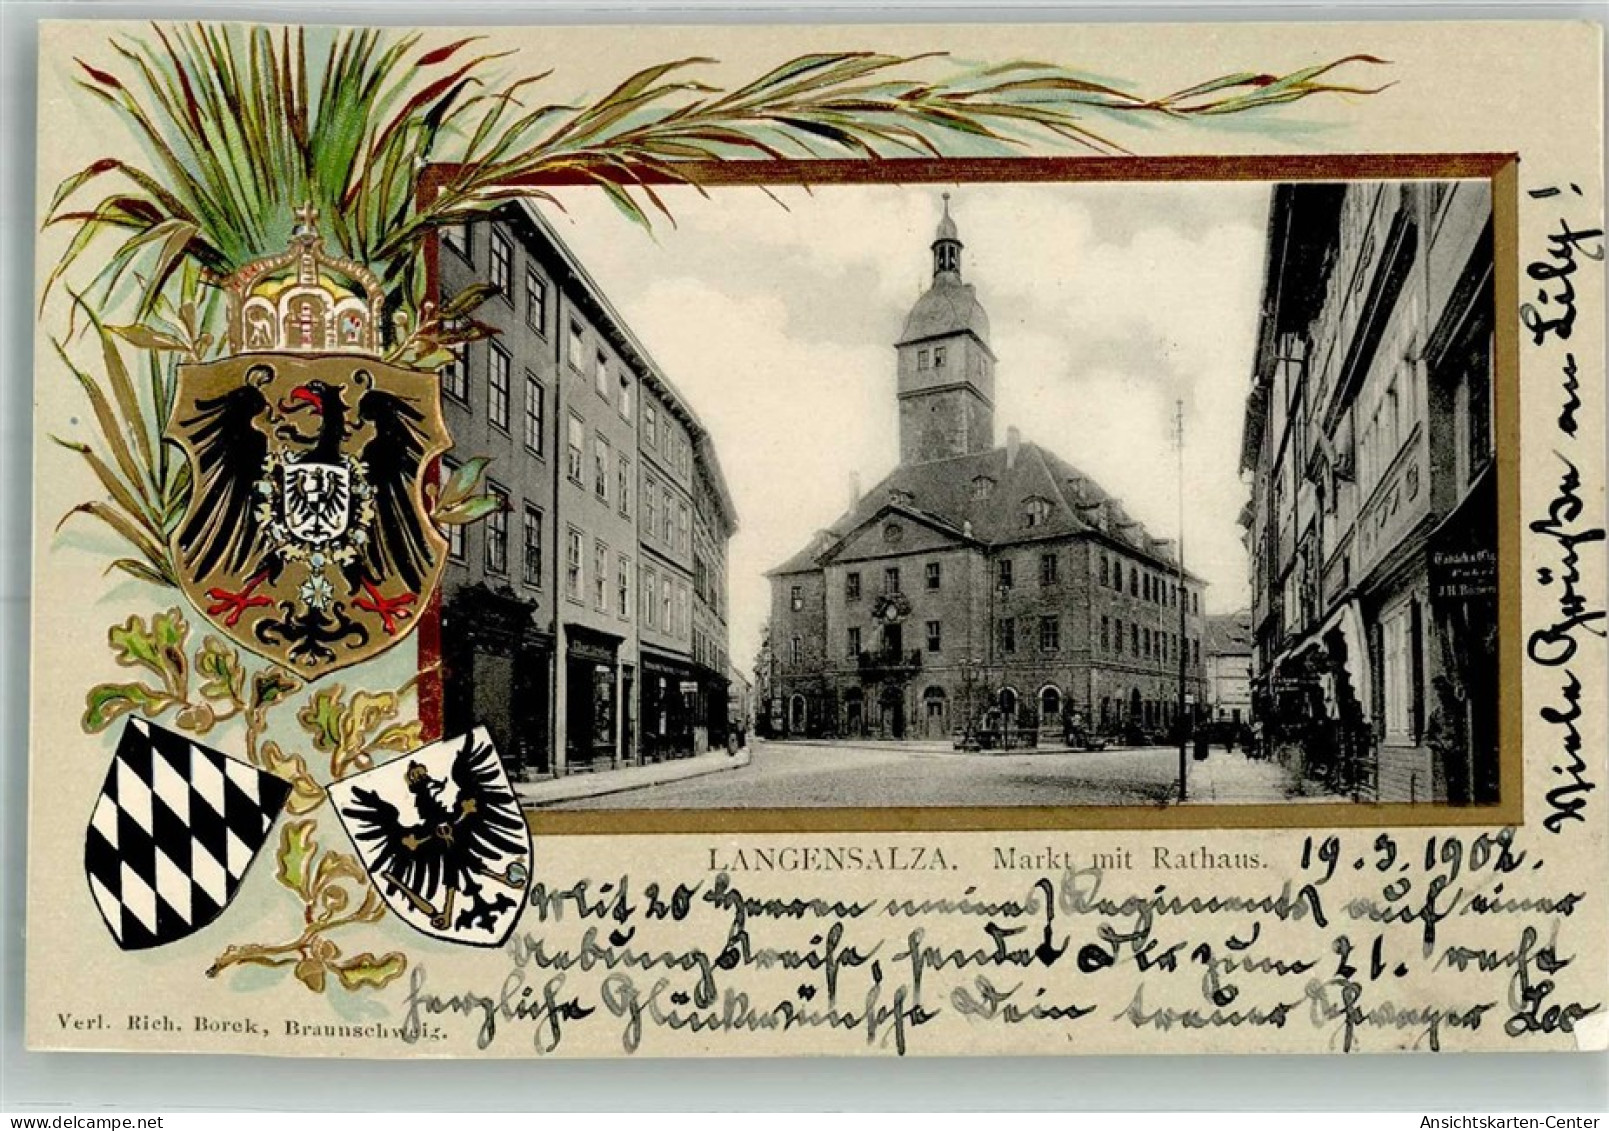 LANGENSALZA. Markt mit Rathaus. 19.3.1902.
Mit 20 Herren meines Regiments auf einer
Uebungsreise, sendet Dir zum 21. recht
herzliche Glückwünsche Dein treuer Schwager Leo
Viele Grüße an Lily!
Verl. Rich. Borek, Braunschweig.
Ansichtskarten-Center